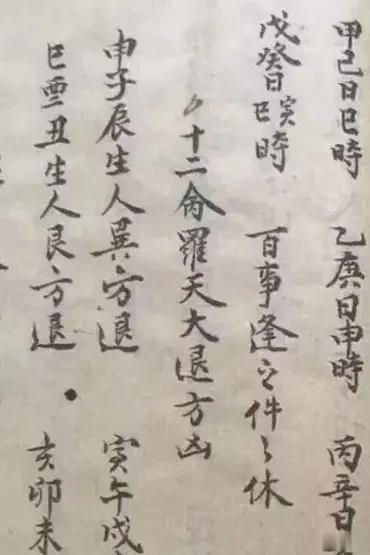 甲己日巳時 乙庚日申時 丙辛日
戊癸日寅巳時 百事逢之件々休
十二命羅天大退方凶
申子辰生人巽方退 寅午戌
巳酉丑生人艮方退 亥卯未